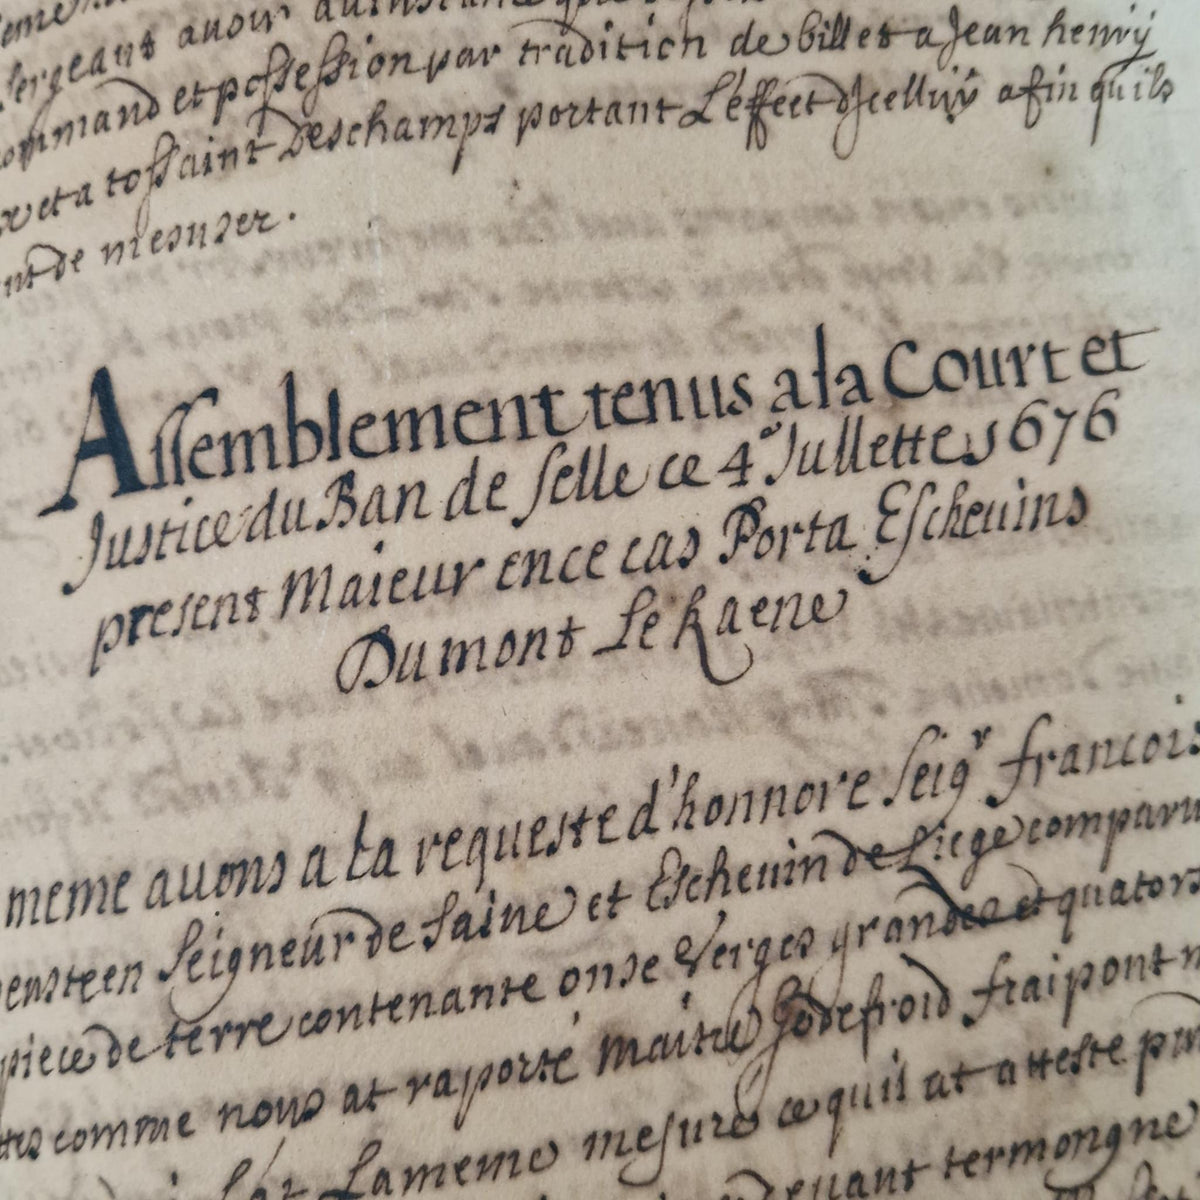 sergeans avoir
command et possession par tradition de billet a Jean henrÿ
et a tossaint Deschamps portant L'effect d'Icelluÿ afin quils
de mesurer.
Assemblement tenus a la Court et
Justice du Ban de selle ce 4e Jullette 1676
present Maieur en ce cas Porta Eschevins
Dumont Le Kaene
meme avons a La requeste d'honnore seigr francois
ensteen seigneur de saine et Eschevin de Liege comparu
piece de terre contenante onse verges grandes et quators
comme nous at raporté maitre Godefroid fraipont
La meme mesure ce quil at atteste
devant termongne